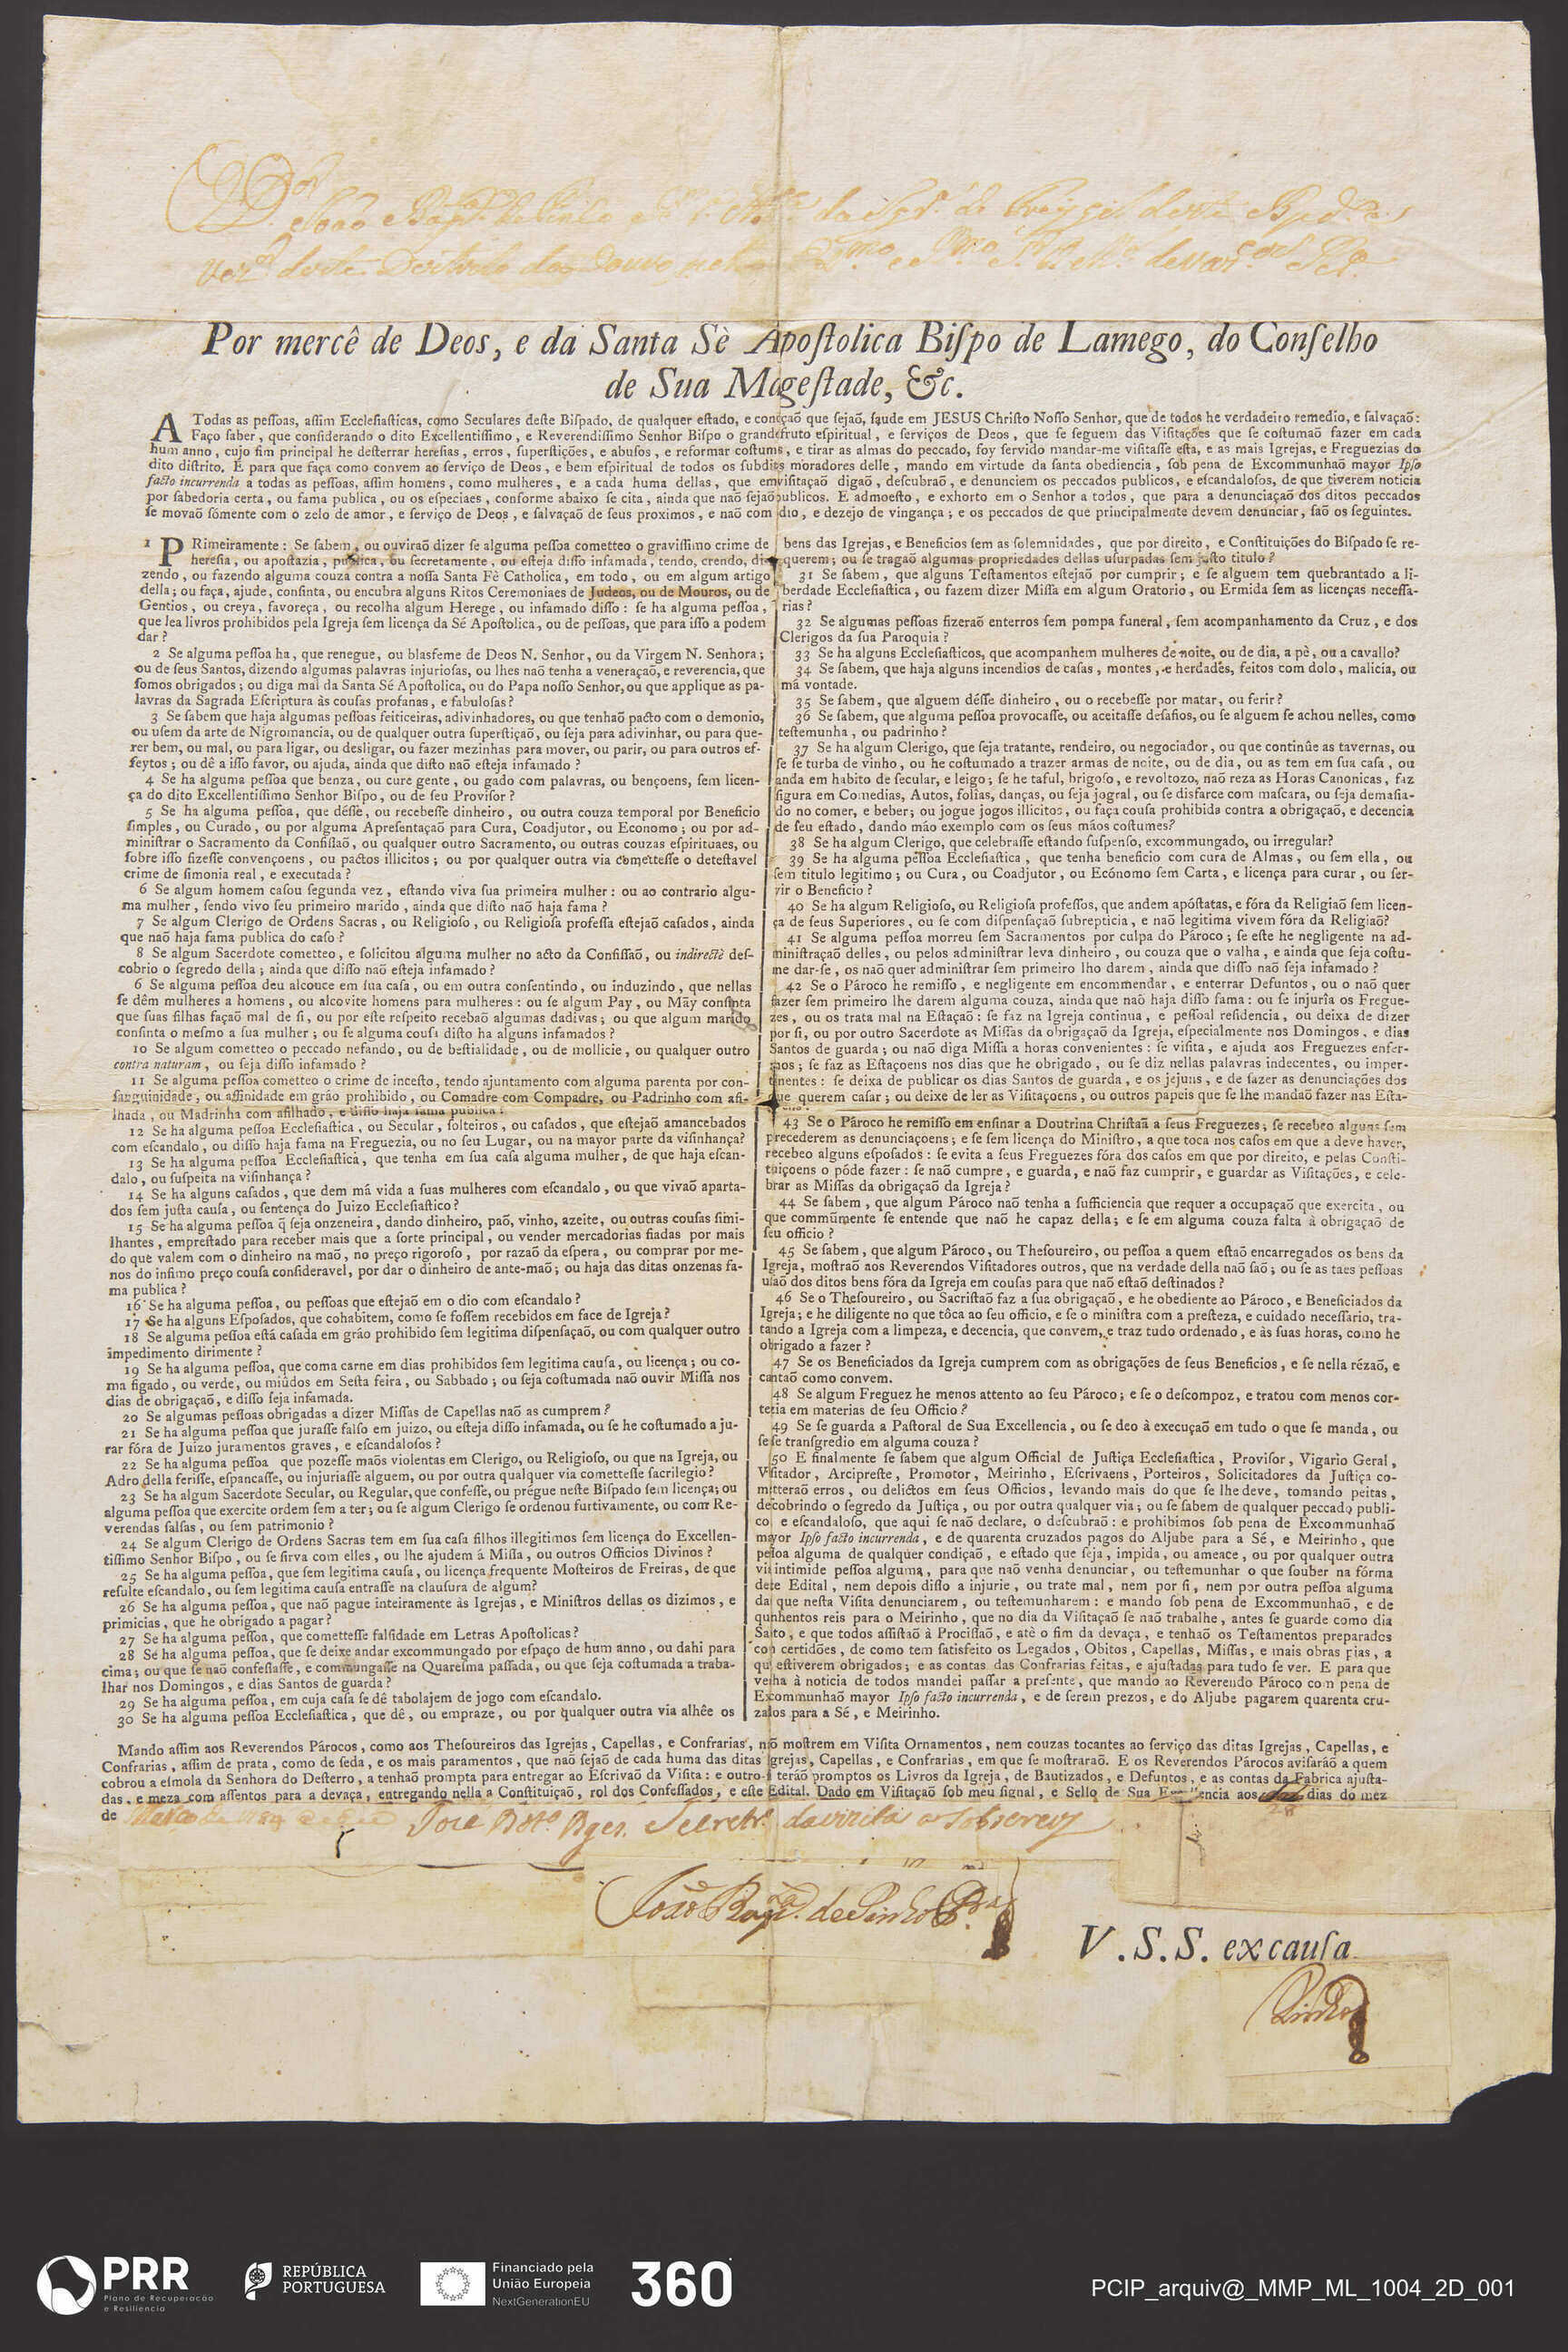 João
deste
Por mercê de Deos, e da Santa Sè Apoſtolica Biſpo de Lamego, do Conſelho
de Sua Mageſtade, &c.
A Todas as peſſoas, aſſim Eccleſiaſticas, como Seculares deſte Biſpado, de qualquer eſtado, e condiçaõ que ſejaõ, ſaude em JESUS Chriſto Noſſo Senhor, que de todos he verdadeiro remedio, e ſalvaçaõ:
Faço ſaber, que conſiderando o dito Excellentiſſimo, e Reverendiſſimo Senhor Biſpo o grande fruto eſpiritual, e ſerviços de Deos, que ſe ſeguem das Viſitações que ſe coſtumaõ fazer em cada
hum anno, cujo fim principal he deſterrar hereſias, erros, ſuperſtições, e abuſos, e reformar coſtums, e tirar as almas do peccado, foy ſervido mandar-me viſitaſſe eſta, e as mais Igrejas, e Freguezias do
dito diſtrito. E para que faça como convem ao ſerviço de Deos, e bem eſpiritual de todos os ſubditos moradores delle, mando em virtude da ſanta obediencia, ſob pena de Excommunhaõ mayor Ipſo
facto incurrenda a todas as peſſoas, aſſim homens, como mulheres, e a cada huma dellas, que em viſitaçaõ digaõ, deſcubraõ, e denunciem os peccados publicos, e eſcandaloſos, de que tiverem noticia
por ſabedoria certa, ou fama publica, ou os eſpeciaes, conforme abaixo ſe cita, ainda que naõ ſejaõ publicos. E admoeſto, e exhorto em o Senhor a todos, que para a denunciaçaõ dos ditos peccados
ſe movaõ ſómente com o zelo de amor, e ſerviço de Deos, e ſalvaçaõ de ſeus proximos, e naõ com odio, e dezejo de vingança; e os peccados de que principalmente devem denunciar, ſaõ os ſeguintes.
1 PRimeiramente: Se ſabem, ou ouviraõ dizer ſe alguma peſſoa cometteo o graviſſimo crime de
hereſia, ou apoſtazia, publica, ou ſecretamente, ou eſteja diſſo infamada, tendo, crendo, di-
zendo, ou fazendo alguma couza contra a noſſa Santa Fè Catholica, em todo, ou em algum artigo
della; ou faça, ajude, conſinta, ou encubra alguns Ritos Ceremoniaes de Judeos, ou de Mouros, ou de
Gentios, ou creya, favoreça, ou recolha algum Herege, ou infamado diſſo: ſe ha alguma peſſoa,
que lea livros prohibidos pela Igreja ſem licença da Sé Apoſtolica, ou de peſſoas, que para iſſo a podem
dar?
2 Se alguma peſſoa ha, que renegue, ou blasfeme de Deos N. Senhor, ou da Virgem N. Senhora;
ou de ſeus Santos, dizendo algumas palavras injurioſas, ou lhes naõ tenha a veneraçaõ, e reverencia, que
ſomos obrigados; ou diga mal da Santa Sé Apoſtolica, ou do Papa noſſo Senhor, ou que applique as pa-
lavras da Sagrada Eſcriptura às couſas profanas, e fabuloſas?
3 Se ſabem que haja algumas peſſoas feiticeiras, adivinhadores, ou que tenhaõ pacto com o demonio,
ou uſem da arte de Nigromancia, ou de qualquer outra ſuperſtiçaõ, ou ſeja para adivinhar, ou para que-
rer bem, ou mal, ou para ligar, ou desligar, ou fazer mezinhas para mover, ou parir, ou para outros ef-
feytos; ou dê a iſſo favor, ou ajuda, ainda que diſto naõ eſteja infamado?
4 Se ha alguma peſſoa que benza, ou cure gente, ou gado com palavras, ou bençoens, ſem licen-
ça do dito Excellentiſſimo Senhor Biſpo, ou de ſeu Proviſor?
5 Se ha alguma peſſoa, que déſſe, ou recebeſſe dinheiro, ou outra couza temporal por Beneficio
ſimples, ou Curado, ou por alguma Apreſentaçaõ para Cura, Coadjutor, ou Economo; ou por ad-
miniſtrar o Sacramento da Confiſſaõ, ou qualquer outro Sacramento, ou outras couzas eſpirituaes, ou
ſobre iſſo fizeſſe convençoens, ou pactos illicitos; ou por qualquer outra via cometteſſe o deteſtavel
crime de ſimonia real, e executada?
6 Se algum homem caſou ſegunda vez, eſtando viva ſua primeira mulher: ou ao contrario algu-
ma mulher, ſendo vivo ſeu primeiro marido, ainda que diſto naõ haja fama?
7 Se algum Clerigo de Ordens Sacras, ou Religioſo, ou Religioſa profeſſa eſtejaõ caſados, ainda
que naõ haja fama publica do caſo?
8 Se algum Sacerdote cometteo, e ſolicitou alguma mulher no acto da Confiſſaõ, ou indirectè deſ-
cobrio o ſegredo della; ainda que diſſo naõ eſteja infamado?
6 Se alguma peſſoa deu alcouce em ſua caſa, ou em outra conſentindo, ou induzindo, que nellas
ſe dêm mulheres a homens, ou alcovite homens para mulheres: ou ſe algum Pay, ou Mãy conſinta
que ſuas filhas façaõ mal de ſi, ou por eſte reſpeito recebaõ algumas dadivas; ou que algum marido
conſinta o meſmo a ſua mulher; ou ſe alguma couſa diſto ha alguns infamados?
10 Se algum cometteo o peccado nefando, ou de beſtialidade, ou de mollicie, ou qualquer outro
contra naturam, ou ſeja diſſo infamado?
11 Se alguma peſſoa cometteo o crime de inceſto, tendo ajuntamento com alguma parenta por con-
ſanguinidade, ou affinidade em gráo prohibido, ou Comadre com Compadre, ou Padrinho com afi-
lhada, ou Madrinha com afilhado, e diſſo haja fama publica?
12 Se ha alguma peſſoa Eccleſiaſtica, ou Secular, ſolteiros, ou caſados, que eſtejaõ amancebados
com eſcandalo, ou diſſo haja fama na Freguezia, ou no ſeu Lugar, ou na mayor parte da viſinhança?
13 Se ha alguma peſſoa Eccleſiaſtica, que tenha em ſua caſa alguma mulher, de que haja eſcan-
dalo, ou ſuſpeita na viſinhança?
14 Se ha alguns caſados, que dem má vida a ſuas mulheres com eſcandalo, ou que vivaõ aparta-
dos ſem juſta cauſa, ou ſentença do Juizo Eccleſiaſtico?
15 Se ha alguma peſſoa q̃ ſeja onzeneira, dando dinheiro, paõ, vinho, azeite, ou outras couſas ſimi-
lhantes, empreſtado para receber mais que a ſorte principal, ou vender mercadorias fiadas por mais
do que valem com o dinheiro na maõ, no preço rigoroſo, por razaõ da eſpera, ou comprar por me-
nos do infimo preço couſa conſideravel, por dar o dinheiro de ante-maõ; ou haja das ditas onzenas fa-
ma publica?
16 Se ha alguma peſſoa, ou peſſoas que eſtejaõ em o dio com eſcandalo?
17 Se ha alguns Eſpoſados, que cohabitem, como ſe foſſem recebidos em face de Igreja?
18 Se alguma peſſoa eſtá caſada em gráo prohibido ſem legitima diſpenſaçaõ, ou com qualquer outro
impedimento dirimente?
19 Se ha alguma peſſoa, que coma carne em dias prohibidos ſem legitima cauſa, ou licença; ou co-
ma figado, ou verde, ou miúdos em Seſta feira, ou Sabbado; ou ſeja coſtumada naõ ouvir Miſſa nos
dias de obrigaçaõ, e diſſo ſeja infamada.
20 Se algumas peſſoas obrigadas a dizer Miſſas de Capellas naõ as cumprem?
21 Se ha alguma peſſoa que juraſſe falſo em juizo, ou eſteja diſſo infamada, ou ſe he coſtumado a ju-
rar fóra de Juizo juramentos graves, e eſcandaloſos?
22 Se ha alguma peſſoa que pozeſſe maõs violentas em Clerigo, ou Religioſo, ou que na Igreja, ou
Adro della feriſſe, eſpancaſſe, ou injuriaſſe alguem, ou por outra qualquer via cometteſſe ſacrilegio?
23 Se ha algum Sacerdote Secular, ou Regular, que confeſſe, ou prégue neſte Biſpado ſem licença; ou
alguma peſſoa que exercite ordem ſem a ter; ou ſe algum Clerigo ſe ordenou furtivamente, ou com Re-
verendas falſas, ou ſem patrimonio?
24 Se algum Clerigo de Ordens Sacras tem em ſua caſa filhos illegitimos ſem licença do Excellen-
tiſſimo Senhor Biſpo, ou ſe ſirva com elles, ou lhe ajudem á Miſſa, ou outros Officios Divinos?
25 Se ha alguma peſſoa, que ſem legitima cauſa, ou licença frequente Moſteiros de Freiras, de que
reſulte eſcandalo, ou ſem legitima cauſa entraſſe na clauſura de algum?
26 Se ha alguma peſſoa, que naõ pague inteiramente às Igrejas, e Miniſtros dellas os dizimos, e
primicias, que he obrigado a pagar?
27 Se ha alguma peſſoa, que cometteſſe falſidade em Letras Apoſtolicas?
28 Se ha alguma peſſoa, que ſe deixe andar excommungado por eſpaço de hum anno, ou dahi para
cima; ou que ſe naõ confeſſaſſe, e commungaſſe na Quareſma paſſada, ou que ſeja coſtumada a traba-
lhar nos Domingos, e dias Santos de guarda?
29 Se ha alguma peſſoa, em cuja caſa ſe dê tabolajem de jogo com eſcandalo.
30 Se ha alguma peſſoa Eccleſiaſtica, que dê, ou empraze, ou por qualquer outra via alhêe os
bens das Igrejas, e Beneficios ſem as ſolemnidades, que por direito, e Conſtituições do Biſpado ſe re-
querem; ou ſe tragaõ algumas propriedades dellas uſurpadas ſem juſto titulo?
31 Se ſabem, que alguns Teſtamentos eſtejaõ por cumprir; e ſe alguem tem quebrantado a li-
berdade Eccleſiaſtica, ou fazem dizer Miſſa em algum Oratorio, ou Ermida ſem as licenças neceſſa-
rias?
32 Se algumas peſſoas fizeraõ enterros ſem pompa funeral, ſem acompanhamento da Cruz, e dos
Clerigos da ſua Paroquia?
33 Se ha alguns Eccleſiaſticos, que acompanhem mulheres de noite, ou de dia, a pè, ou a cavallo?
34 Se ſabem, que haja alguns incendios de caſas, montes, e herdades, feitos com dolo, malicia, ou
má vontade.
35 Se ſabem, que alguem déſſe dinheiro, ou o recebeſſe por matar, ou ferir?
36 Se ſabem, que alguma peſſoa provocaſſe, ou aceitaſſe deſafios, ou ſe alguem ſe achou nelles, como
teſtemunha, ou padrinho?
37 Se ha algum Clerigo, que ſeja tratante, rendeiro, ou negociador, ou que continûe as tavernas, ou
ſe ſe turba de vinho, ou he coſtumado a trazer armas de noite, ou de dia, ou as tem em ſua caſa, ou
anda em habito de ſecular, e leigo; ſe he taful, brigoſo, e revoltozo, naõ reza as Horas Canonicas, faz
figura em Comedias, Autos, folias, danças, ou ſeja jogral, ou ſe disfarce com maſcara, ou ſeja demaſia-
do no comer, e beber; ou jogue jogos illicitos, ou faça couſa prohibida contra a obrigaçaõ, e decencia
de ſeu eſtado, dando máo exemplo com os ſeus máos coſtumes?
38 Se ha algum Clerigo, que celebraſſe eſtando ſuſpenſo, excommungado, ou irregular?
39 Se ha alguma peſſoa Eccleſiaſtica, que tenha beneficio com cura de Almas, ou ſem ella, ou
ſem titulo legitimo; ou Cura, ou Coadjutor, ou Ecónomo ſem Carta, e licença para curar, ou ſer-
vir o Beneficio?
40 Se ha algum Religioſo, ou Religioſa profeſſos, que andem apóſtatas, e fóra da Religiaõ ſem licen-
ça de ſeus Superiores, ou ſe com diſpenſaçaõ ſubrepticia, e naõ legitima vivem fóra da Religiaõ?
41 Se alguma peſſoa morreu ſem Sacramentos por culpa do Pároco; ſe eſte he negligente na ad-
miniſtraçaõ delles, ou pelos adminiſtrar leva dinheiro, ou couza que o valha, e ainda que ſeja coſtu-
me dar-ſe, os naõ quer adminiſtrar ſem primeiro lho darem, ainda que diſſo naõ ſeja infamado?
42 Se o Pároco he remiſſo, e negligente em encommendar, e enterrar Defuntos, ou o naõ quer
fazer ſem primeiro lhe darem alguma couza, ainda que naõ haja diſſo fama: ou ſe injurîa os Fregue-
zes, ou os trata mal na Eſtaçaõ: ſe faz na Igreja continua, e peſſoal reſidencia, ou deixa de dizer
por ſi, ou por outro Sacerdote as Miſſas da obrigaçaõ da Igreja, eſpecialmente nos Domingos, e dias
Santos de guarda; ou naõ diga Miſſa a horas convenientes: ſe viſita, e ajuda aos Freguezes enfer-
mos; ſe faz as Eſtaçoens nos dias que he obrigado, ou ſe diz nellas palavras indecentes, ou imper-
tinentes: ſe deixa de publicar os dias Santos de guarda, e os jejuns, e de fazer as denunciações dos
que querem caſar; ou deixe de ler as Viſitaçoens, ou outros papeis que ſe lhe mandaõ fazer nas Eſta-
43 Se o Pároco he remiſſo em enſinar a Doutrina Chriſtaã a ſeus Freguezes; ſe recebeo alguns ſem
precederem as denunciaçoens; e ſe ſem licença do Miniſtro, a que toca nos caſos em que a deve haver,
recebeo alguns eſpoſados: ſe evita a ſeus Freguezes fóra dos caſos em que por direito, e pelas Conſti-
tuiçoens o póde fazer: ſe naõ cumpre, e guarda, e naõ faz cumprir, e guardar as Viſitações, e cele-
brar as Miſſas da obrigaçaõ da Igreja?
44 Se ſabem, que algum Pároco naõ tenha a ſufficiencia que requer a occupaçaõ que exercita, ou
que commũmente ſe entende que naõ he capaz della; e ſe em alguma couza falta à obrigaçaõ de
ſeu officio?
45 Se ſabem, que algum Pároco, ou Theſoureiro, ou peſſoa a quem eſtaõ encarregados os bens da
Igreja, moſtraõ aos Reverendos Viſitadores outros, que na verdade della naõ ſaõ; ou ſe as taes peſſoas
uſaõ dos ditos bens fóra da Igreja em couſas para que naõ eſtaõ deſtinados?
46 Se o Theſoureiro, ou Sacriſtaõ faz a ſua obrigaçaõ, e he obediente ao Pároco, e Beneficiados da
Igreja; e he diligente no que tôca ao ſeu officio, e ſe o miniſtra com a preſteza, e cuidado neceſſario, tra-
tando a Igreja com a limpeza, e decencia, que convem, e traz tudo ordenado, e às ſuas horas, como he
obrigado a fazer?
47 Se os Beneficiados da Igreja cumprem com as obrigações de ſeus Beneficios, e ſe nella rézaõ, e
cantaõ como convem.
48 Se algum Freguez he menos attento ao ſeu Pároco; e ſe o deſcompoz, e tratou com menos cor-
tezia em materias de ſeu Officio?
49 Se ſe guarda a Paſtoral de Sua Excellencia, ou ſe deo à execuçaõ em tudo o que ſe manda, ou
ſe ſe tranſgredio em alguma couza?
50 E finalmente ſe ſabem que algum Official de Juſtiça Eccleſiaſtica, Proviſor, Vigario Geral,
Viſitador, Arcipreſte, Promotor, Meirinho, Eſcrivaens, Porteiros, Solicitadores da Juſtiça co-
mitteraõ erros, ou delictos em ſeus Officios, levando mais do que ſe lhe deve, tomando peitas,
deſcobrindo o ſegredo da Juſtiça, ou por outra qualquer via; ou ſe ſabem de qualquer peccado publi-
co, e eſcandaloſo, que aqui ſe naõ declare, o deſcubraõ: e prohibimos ſob pena de Excommunhaõ
mayor Ipſo facto incurrenda, e de quarenta cruzados pagos do Aljube para a Sé, e Meirinho, que
peſſoa alguma de qualquer condiçaõ, e eſtado que ſeja, impida, ou ameace, ou por qualquer outra
via intimide peſſoa alguma, para que naõ venha denunciar, ou teſtemunhar o que ſouber na fórma
deſte Edital, nem depois diſſo a injurie, ou trate mal, nem por ſi, nem por outra peſſoa alguma
da que neſta Viſita denunciarem, ou teſtemunharem: e mando ſob pena de Excommunhaõ, e de
quinhentos reis para o Meirinho, que no dia da Viſitaçaõ ſe naõ trabalhe, antes ſe guarde como dia
Santo, e que todos aſſiſtaõ à Prociſſaõ, e atè o fim da devaça, e tenhaõ os Teſtamentos preparados
com certidões, de como tem ſatisfeito os Legados, Obitos, Capellas, Miſſas, e mais obras pias, a
que eſtiverem obrigados; e as contas das Confrarias feitas, e ajuſtadas para tudo ſe ver. E para que
venha à noticia de todos mandei paſſar a preſente, que mando ao Reverendo Pároco com pena de
Excommunhaõ mayor Ipſo facto incurrenda, e de ſerem prezos, e do Aljube pagarem quarenta cru-
zados para a Sé, e Meirinho.
Mando aſſim aos Reverendos Párocos, como aos Theſoureiros das Igrejas, Capellas, e Confrarias, naõ moſtrem em Viſita Ornamentos, nem couzas tocantes ao ſerviço das ditas Igrejas, Capellas, e
Confrarias, aſſim de prata, como de ſeda, e os mais paramentos, que naõ ſejaõ de cada huma das ditas Igrejas, Capellas, e Confrarias, em que ſe moſtraraõ. E os Reverendos Párocos aviſaráõ a quem
cobrou a eſmola da Senhora do Deſterro, a tenhaõ prompta para entregar ao Eſcrivaõ da Viſita: e outro-ſi teráõ promptos os Livros da Igreja, de Bautizados, e Defuntos, e as contas da Fabrica ajuſta-
das, e meza com aſſentos para a devaça, entregando nella a Conſtituiçaõ, rol dos Confeſſados, e eſte Edital. Dado em Viſitaçaõ ſob meu ſignal, e Sello de Sua Excellencia aos 28 dias do mez
de Março de Secretr.º da vizita o sobscrevy
João Bapt.ª de Pinho
V. S. S. ex cauſa
Pinho
PRR
Plano de Recuperação
e Resiliência
REPÚBLICA
PORTUGUESA
Financiado pela
União Europeia
NextGenerationEU
360
PCIP_arquiv@_MMP_ML_1004_2D_001